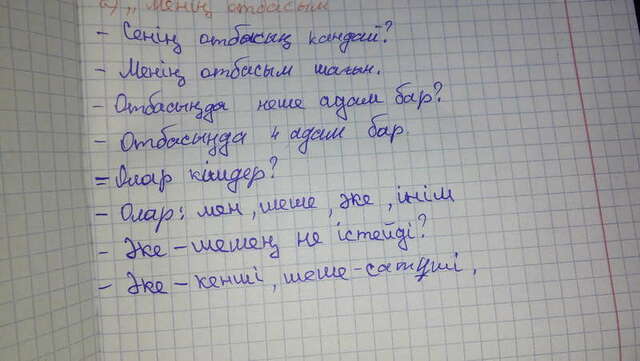 а) „ Менің отбасым
- Сенің отбасың қандай?
- Менің отбасым шағын.
- Отбасыңда неше адам бар?
- Отбасыңда 4 адам бар.
= Олар кімдер?
- Олар: мен, шеше, әке, ініім
- Әке-шешең не істейді?
- Әке-кенші, шеше-сатушы,